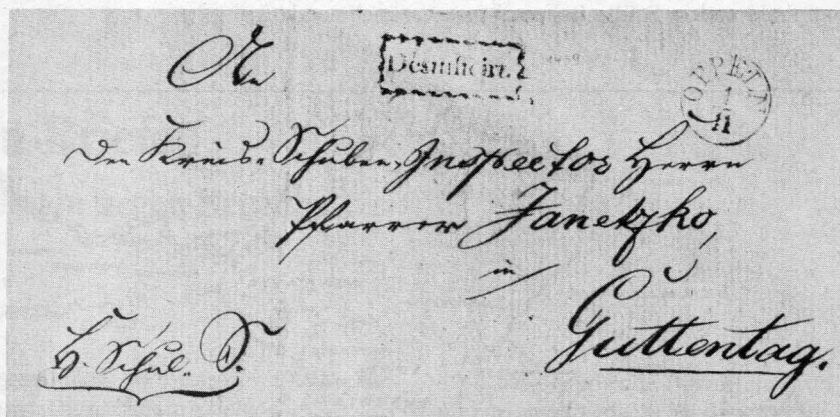 An
Desinficirt.
OPPELN
1
11
den Kreis-Schulen-Inspector Herrn
Pfarrer Janetzko,
in
Guttentag.
H. Schul. S.